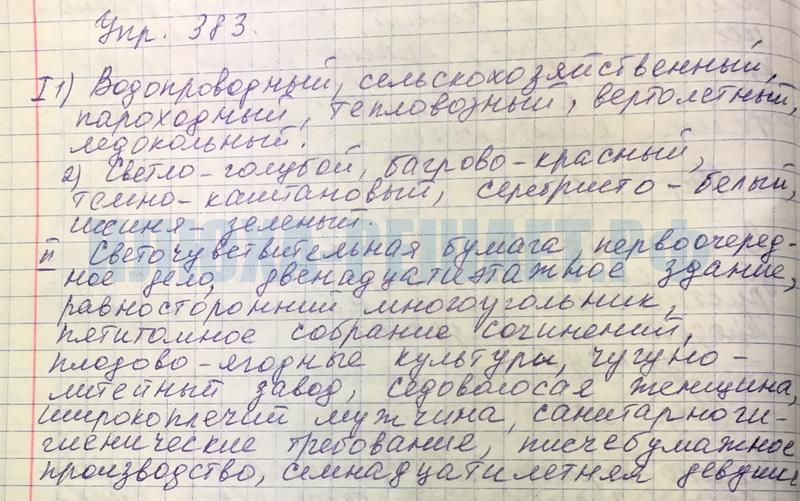 Упр. 383.
I 1) Водопроводный, сельскохозяйственный,
пароходный, тепловозный, вертолетный,
ледокольный.
2) Светло-голубой, багрово-красный,
темно-каштановый, серебристо-белый,
иссиня-зеленый.
II Светочувствительная бумага, первоочеред-
ное дело, двенадцатиэтажное здание,
равносторонний многоугольник,
пятитомное собрание сочинений,
плодово-ягодные культуры, чугуно-
литейный завод, седоволосая женщина,
широкоплечий мужчина, санитарноги-
гиенические требование, писчебумажное
производство, семнадцатилетняя девушка